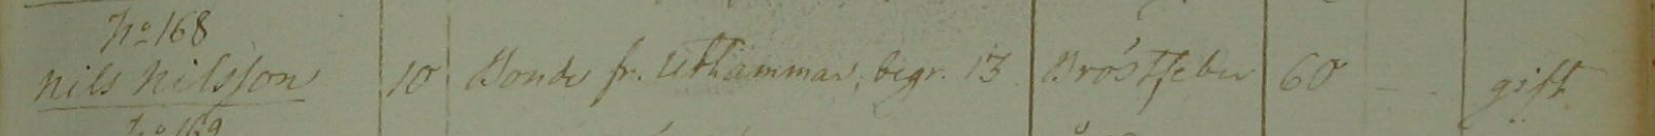 No 168
Nils Nilsson 10 Bonde fr. Uthammar, begr. 13 Bröstfeber 60 gift
No 169